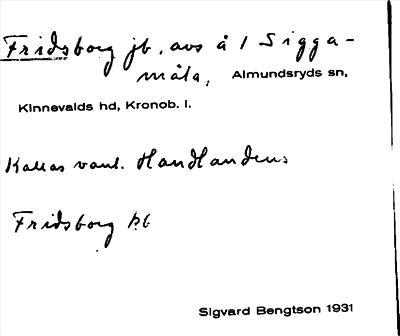 Fridsborg jb, avs å 1 Sigga-
måla, Almundsryds sn,
Kinnevalds hd, Kronob. l.
Kallas vanl. Handlandens
Fridsborg
Sigvard Bengtson 1931